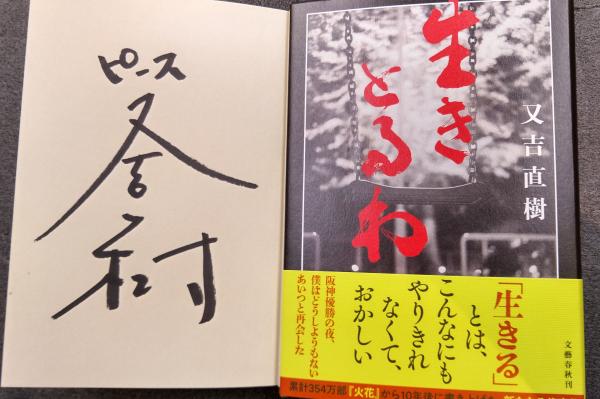 ピース
又吉
生き
とるわ
又吉直樹
「生きる」
とは、
こんなにも
やりきれ
なくて、
おかしい
阪神優勝の夜、
僕はどうしようもない
あいつと再会した
文藝春秋刊
累計354万部『火花』から10年後に書き上げた